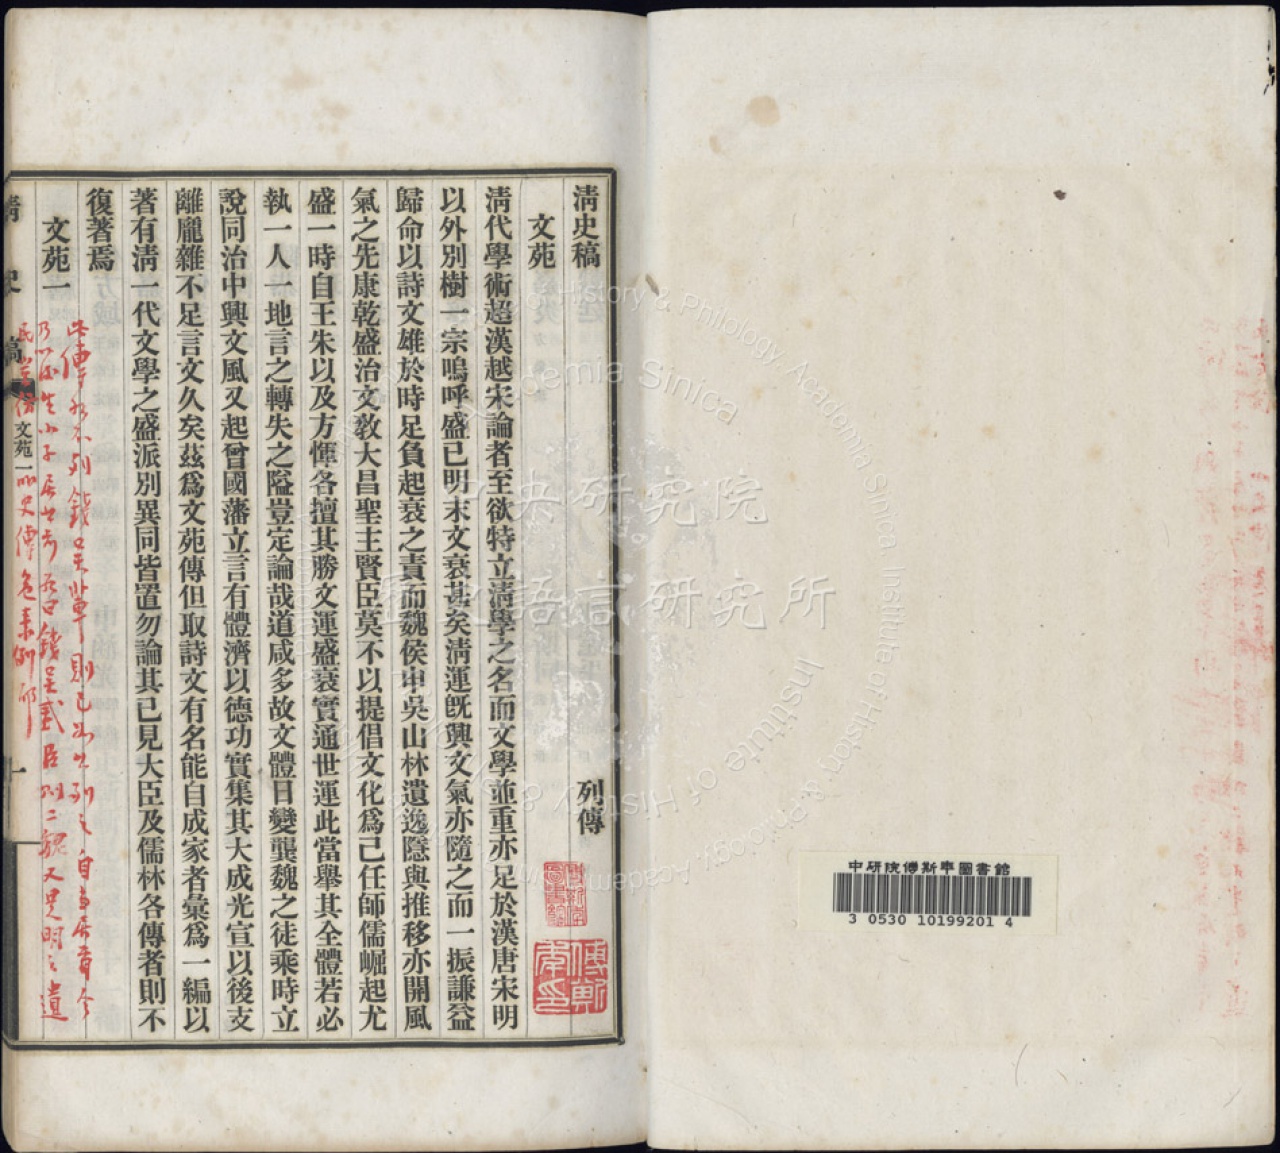 清史稿 列傳
文苑
清代學術超漢越宋論者至欲特立清學之名而文學並重亦足於漢唐宋明
以外別樹一宗嗚呼盛已明末文衰甚矣清運旣興文氣亦隨之而一振謙益
歸命以詩文雄於時足負起衰之責而魏侯申吳山林遺逸隱與推移亦開風
氣之先康乾盛治文敎大昌聖主賢臣莫不以提倡文化爲己任師儒崛起尤
盛一時自王朱以及方惲各擅其勝文運盛衰實通世運此當舉其全體若必
執一人一地言之轉失之隘豈定論哉道咸多故文體日變龔魏之徒乘時立
說同治中興文風又起曾國藩立言有體濟以德功實集其大成光宣以後支
離龐雜不足言文久矣茲爲文苑傳但取詩文有名能自成家者彙爲一編以
著有清一代文學之盛派別異同皆置勿論其已見大臣及儒林各傳者則不
復著焉
文苑一
此傳永不列錢吳輩則已
錢吳貳臣
又是明之遺
民
史傳
清史稿
文苑一
一
傅斯年圖書館
傅斯年印
中央研究院
歷史語言研究所
Institute of History & Philology, Academia Sinica
中研院傅斯年圖書館
3 0530 10199201 4